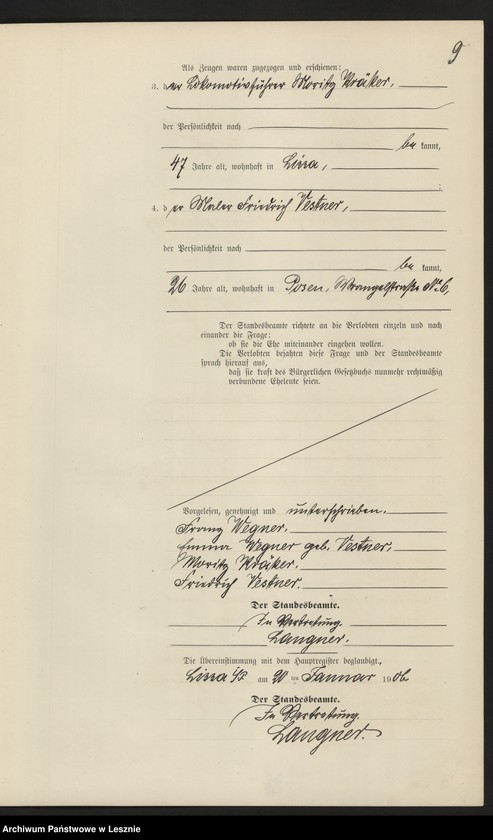 9
Als Zeugen waren zugezogen und erschienen:
3. der Lokomotivführer Moritz Kräker,
der Persönlichkeit nach
be kannt,
47 Jahre alt, wohnhaft in Lissa,
4. der Maler Friedrich Vestner,
der Persönlichkeit nach
be kannt,
26 Jahre alt, wohnhaft in Posen, Wrangelstraße No 6,
Der Standesbeamte richtete an die Verlobten einzeln und nach
einander die Frage:
ob sie die Ehe miteinander eingehen wollen.
Die Verlobten bejahten diese Frage und der Standesbeamte
sprach hierauf aus,
daß sie kraft des Bürgerlichen Gesetzbuchs nunmehr rechtmäßig
verbundene Eheleute seien.
Vorgelesen, genehmigt und unterschrieben.
Franz Wegner.
Emma Wegner geb. Vestner.
Moritz Kräker.
Friedrich Vestner.
Der Standesbeamte.
In Vertretung.
Langner.
Die Übereinstimmung mit dem Hauptregister beglaubigt.
Lissa am 20 ten Januar 1906
Der Standesbeamte.
In Vertretung.
Langner.
Archiwum Państwowe w Lesznie